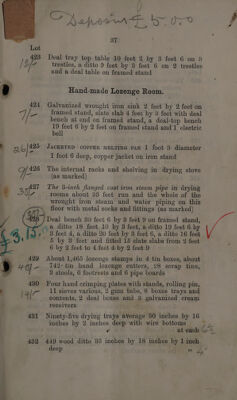 Deposits £5.0.0
37
Lot
423 Deal tray top table 10 feet 2 by 3 feet 6 on 3
trestles, a ditto 9 feet by 3 feet 6 on 2 trestles
and a deal table on framed stand
Hand-made Lozenge Room.
424 Galvanized wrought iron sink 2 feet by 2 feet on
framed stand, slate slab 6 feet by 3 feet with deal
bench at end on framed stand, a deal-top bench
19 feet 6 by 2 feet on framed stand and 1 electric
bell
7/-
425 JACKETED COPPER MELTING PAN 1 foot 3 diameter
1 foot 6 deep, copper jacket on iron stand
26/-
426 The internal racks and shelving in drying store
(as marked)
427 The 9-inch flanged cast iron steam pipe in drying
rooms about 35 feet run and the whole of the
wrought iron steam and water piping on this
floor with metal cocks and fittings (as marked)
428 Deal bench 20 feet 6 by 3 feet 9 on framed stand,
a ditto 18 feet 10 by 3 feet, a ditto 19 feet 6 by
3 feet 4, a ditto 20 feet by 3 feet 6, a ditto 16 feet
5 by 3 feet and fitted 15 slate slabs from 2 feet
6 by 2 feet to 4 feet 3 by 2 feet 9
£3.15.0
429 About 1,465 lozenge stamps in 4 tin boxes, about
742 tin hand lozenge cutters, 18 scrap tins,
3 stools, 6 footrests and 6 pipe boards
40/-
430 Four hand crimping plates with stands, rolling pin,
11 sieves various, 2 gum tubs, 8 boxes trays and
contents, 2 deal boxes and 3 galvanized cream
receivers
14/-
431 Ninety-five drying trays average 30 inches by 16
inches by 2 inches deep with wire bottoms
at each
432 449 wood ditto 33 inches by 18 inches by 1 inch
deep